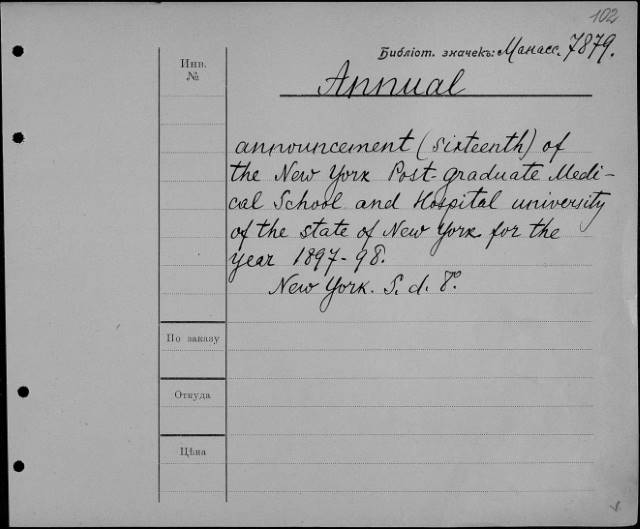 102
Библіот. значекъ: Манасс. 7879.
Инв.
№
Annual
announcement (sixteenth) of
the New York Post-graduate Medi-
cal School and Hospital university
of the state of New York for the
year 1897-98.
New York. S. d. 8°.
По заказу
Откуда
Цѣна